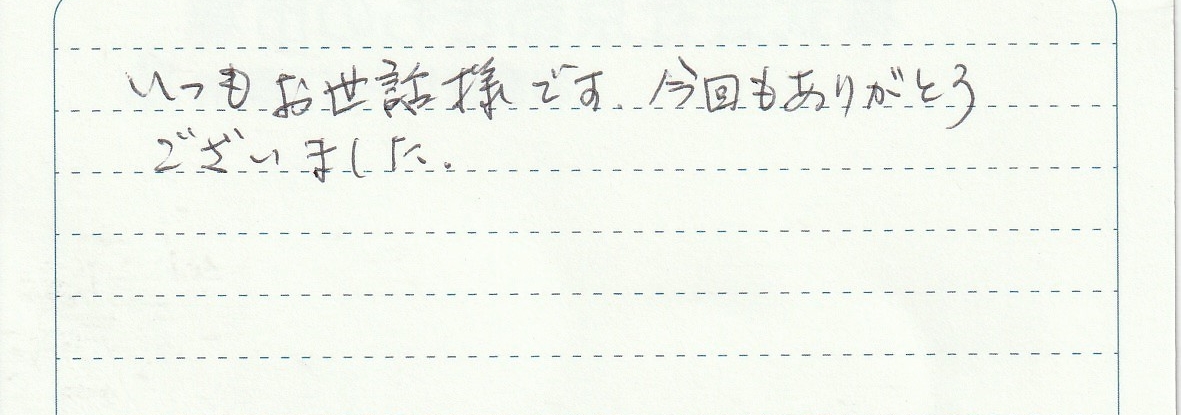 いつもお世話様です。今回もありがとう
ございました。